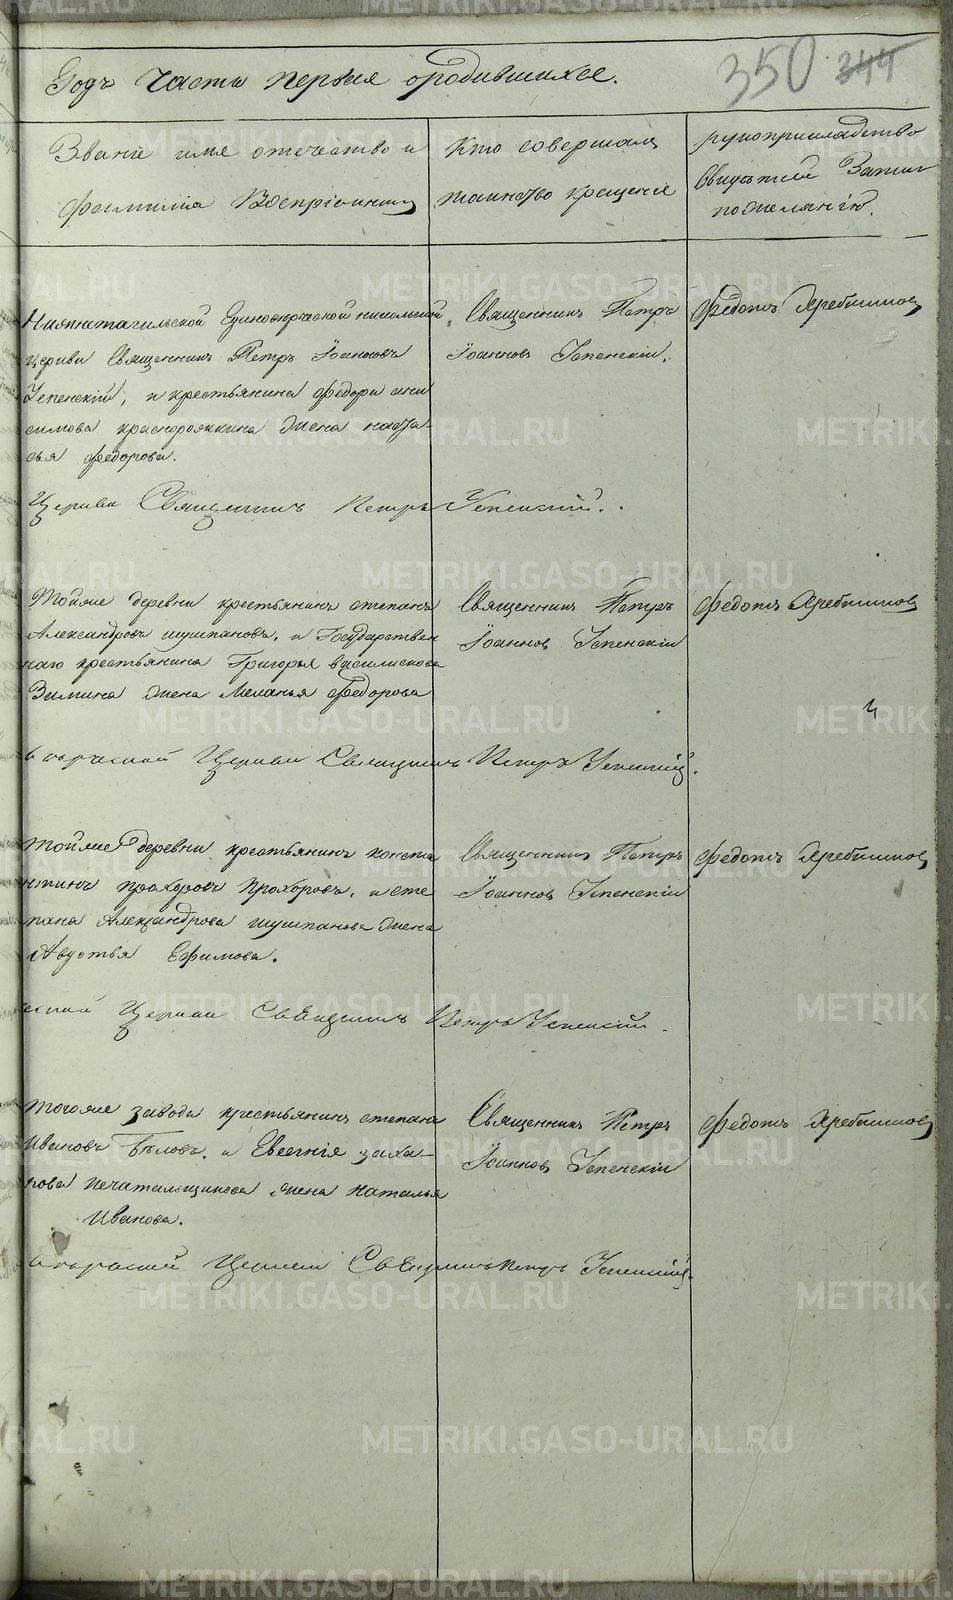 Годъ Часть первая о родившихся.
350 344
Звание имя отчество и
фамилия Восприемниц
Кто совершалъ
таинство крещение
рукоприкладство
Свидетелей Записи
по желанію.
Нижнетагильской Единоверческой никольской
церкви Священникъ Петръ Іоанновъ
Успенскій, и крестьянина федора ани
симова краснорожкина жена наста-
сья федорова.
Священникъ Петръ
Іоанновъ Успенскій.
Федотъ Хребтиков
Церкви Священникъ Петръ Успенский.
Тойже деревни крестьянинъ степанъ
Александровъ шушпановъ, и Государствен
наго крестьянина Григорья василискова
Зимина жена Меланья Федорова
Священникъ Петръ
Іоаннов Успенскій
Федотъ Хребтиков
Церкви Священникъ Петръ Успенский.
Тойже деревни крестьянинъ конста
нтинъ прохоровъ Прохоровъ, и сте
пана Александрова шушпанова жена
Авдотья Ефимова.
Священникъ Петръ
Іоаннов Успенскій
Федотъ Хребтиков
Церкви Священникъ Петръ Успенский.
тогоже завода крестьянинъ степанъ
Ивановъ Беловъ, и Евгенія заха-
рова печатальщикова жена наталья
Иванова.
Священникъ Петръ
Іоаннов Успенскій
Федотъ Хребтиков
Церкви Священникъ Петръ Успенский.
METRIKI.GASO-URAL.RU